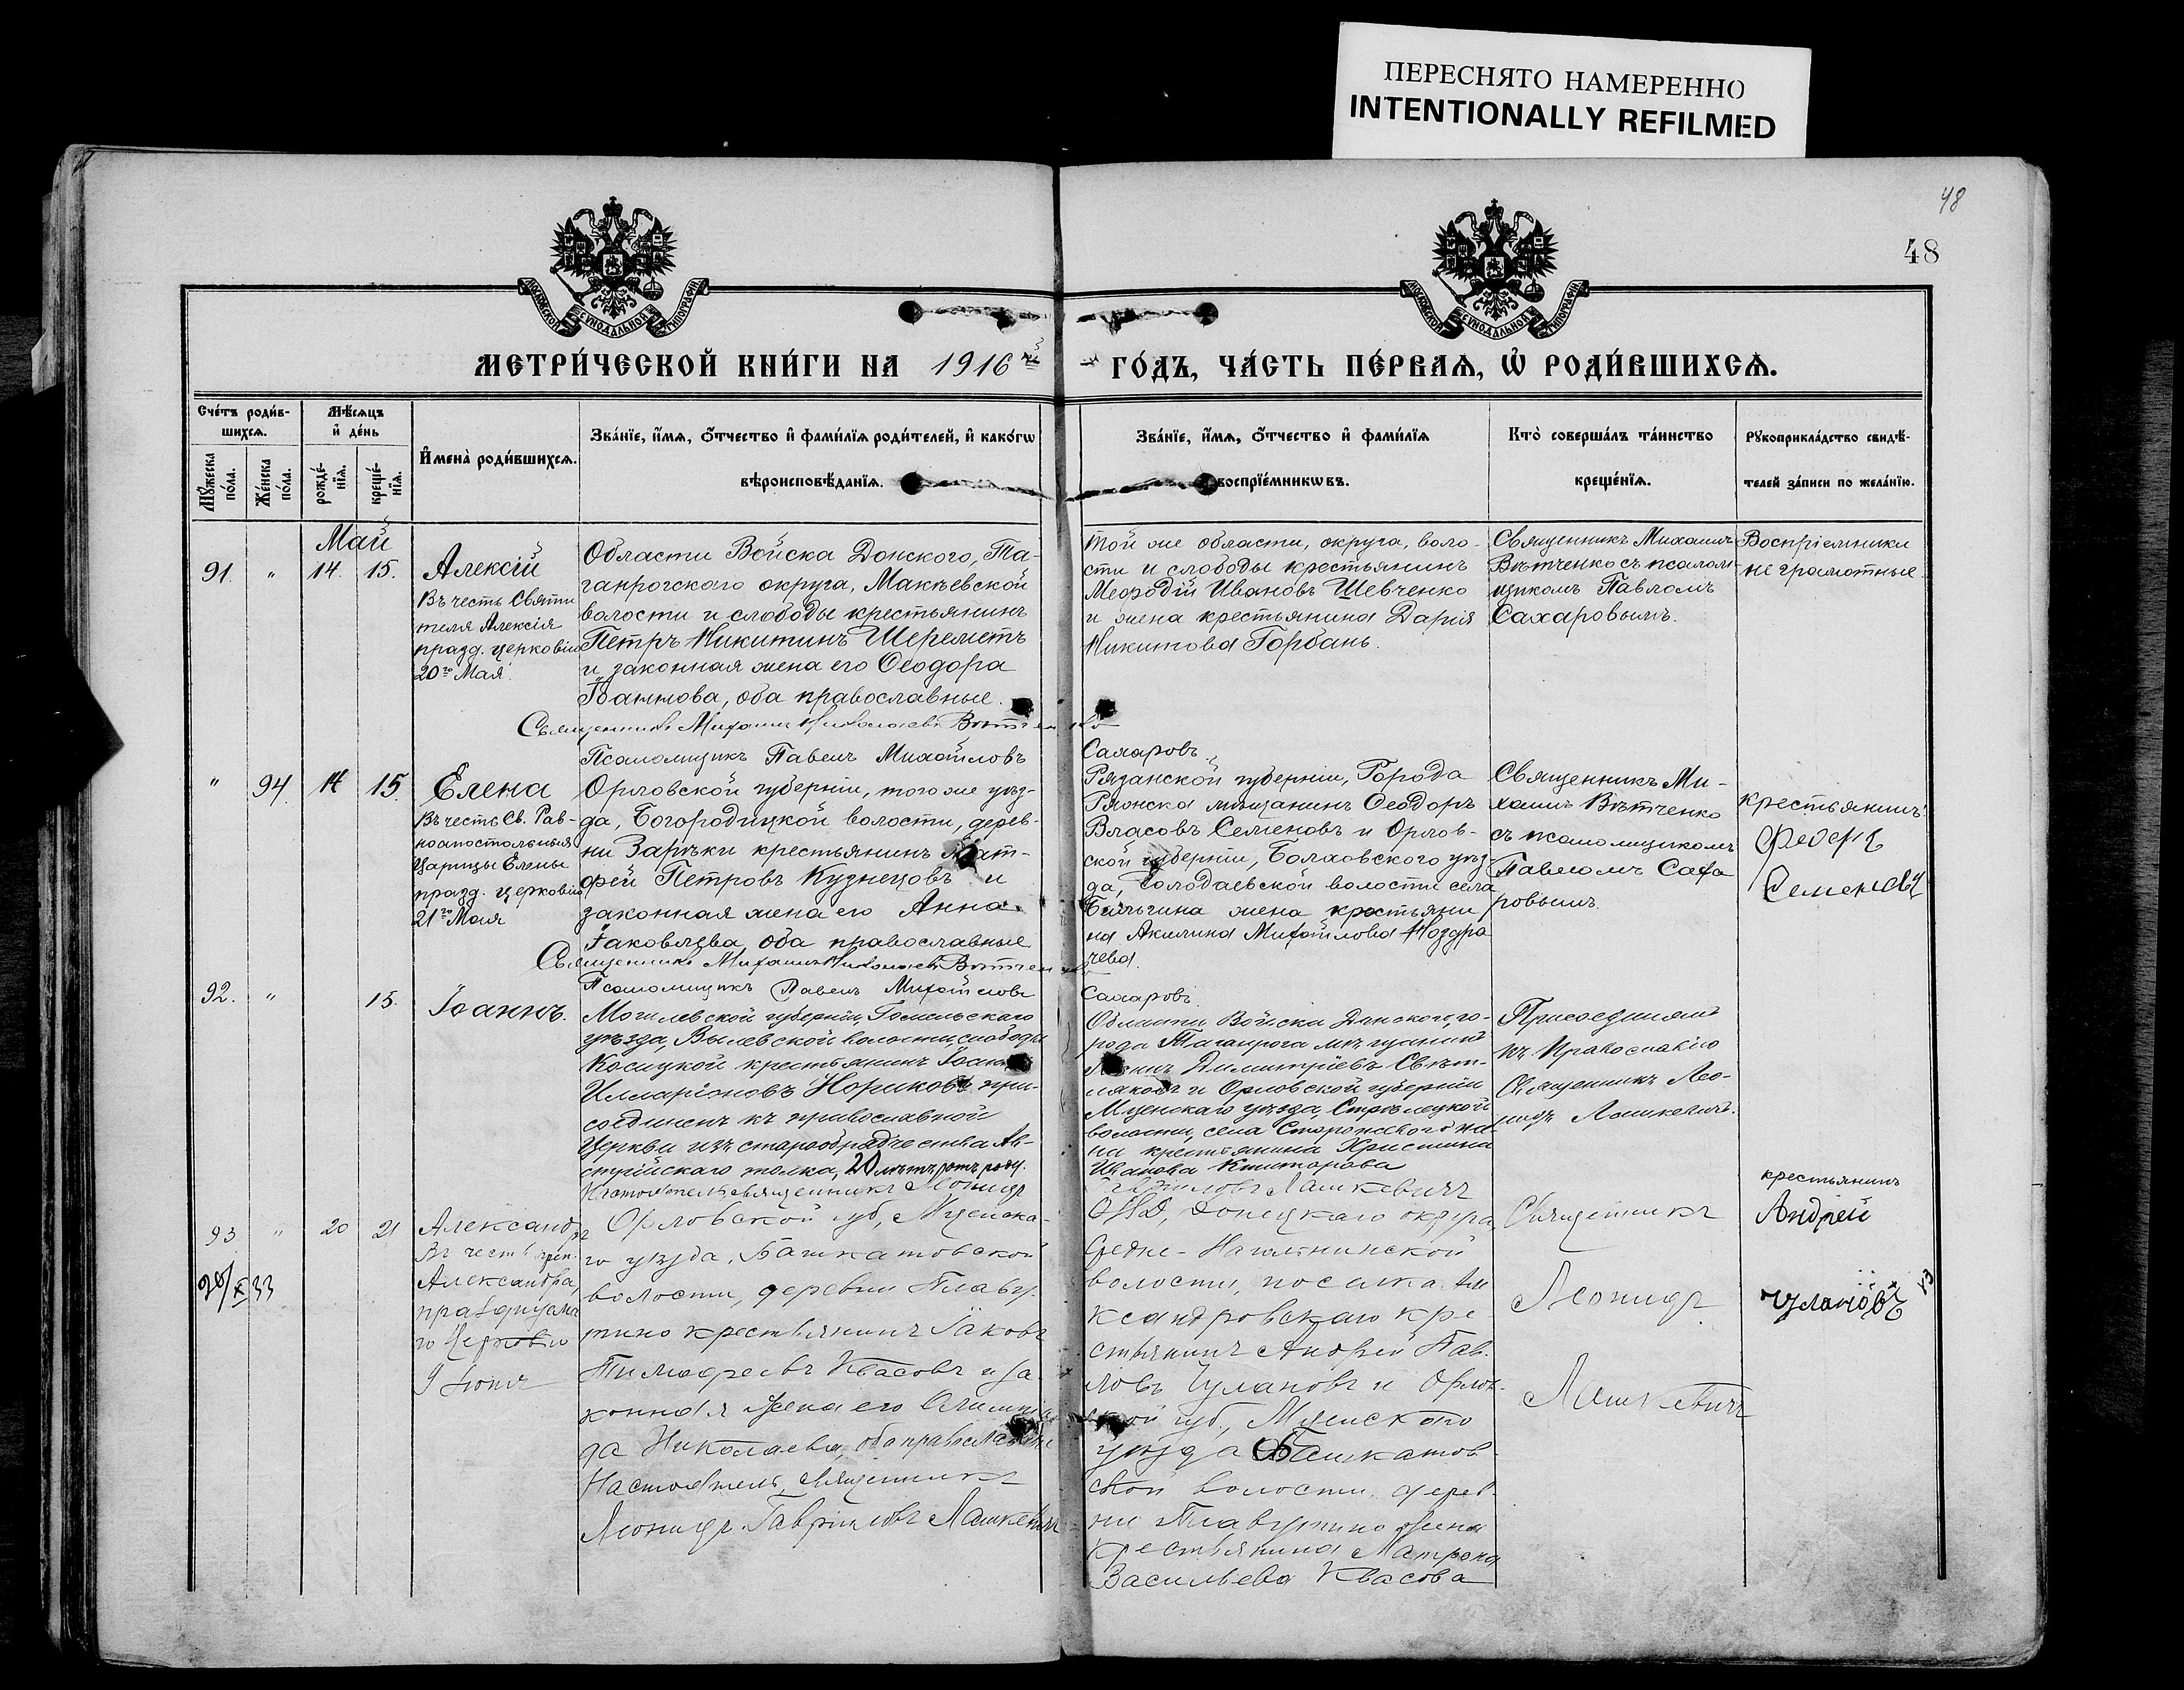 ПЕРЕСНЯТО НАМЕРЕННО
INTENTIONALLY REFILMED
48
48
МОСКОВСКОЙ СѴНОДАЛЬНОЙ ТИПОГРАФІИ
МОСКОВСКОЙ СѴНОДАЛЬНОЙ ТИПОГРАФІИ
МЕТРИ́ЧЕСКОЙ КНИ́ГИ НА 1916 й ГО́ДЪ, ЧА́СТЬ ПЕ́РВАѦ, Ѡ҆ РОДИ́ВШИХСѦ.
Сче́тъ роди́в-
шихсѧ.
Мꙋ́жеска
по́ла.
Же́нска
по́ла.
Мѣ́сѧцъ
и҆ де́нь
рожде́-
нїѧ.
креще́-
нїѧ.
И҆мена̀ роди́вшихсѧ.
Зва́нїе, и҆́мѧ, ѻ҆́тчество и҆ фами́лїѧ роди́телей, и҆ како́гѡ
вѣроисповѣ́данїѧ.
Зва́нїе, и҆́мѧ, ѻ҆́тчество и҆ фами́лїѧ
воспрїе́мникѡвъ.
Кто̀ соверша́лъ та́инство
креще́нїѧ.
Рꙋкоприкла́дство свидѣ́-
телей за́писи по жела́нїю.
Май
91. " 14. 15.
Алексій
Въ честь Святи
теля Алексія
празд. церковію
20го Мая.
Области Войска Донского, Та-
ганрогского округа, Макѣевской
волости и слободы крестьянинъ
Петръ Никитинъ Шереметъ
и законная жена его Ѳеодора
Іоаннова, оба православные.
Священникъ Михаилъ Николаевъ Вѣтченко
Псаломщикъ Павелъ Михайловъ
Той же области, округа, воло-
сти и слободы крестьянинъ
Меѳодій Ивановъ Шевченко
и жена крестьянина Дарія
Никитова Горбань.
Сахаровъ.
Священникъ Михаилъ
Вѣтченко съ псалом-
щикомъ Павломъ
Сахаровымъ.
Воспріемники
не грамотные.
" 94. 14 15.
Елена
Въ честь Св. Рав-
ноапостольныя
Царицы Елены
празд. церковію
21го Мая
Орловской губерніи, того же уѣз-
да, Богородицкой волости, дерев-
ни Зарѣки крестьянинъ Мат-
фей Петровъ Кузнецовъ и
законная жена его Анна
Іаковлева, оба православные
Священникъ Михаилъ Николаевъ Вѣтченко
Псаломщикъ Павелъ Михайловъ
Рязанской губерніи, Города
Ряжска мѣщанинъ Ѳеодоръ
Власовъ Семеновъ и Орлов-
ской губерніи, Болховского уѣз-
да, волости села
жена крестьяни
на Акилина Михайлова Ноздра
чева.
Сахаровъ.
Священникъ Ми-
хаилъ Вѣтченко
съ псаломщикомъ
Павломъ Саха
ровымъ
крестьянинъ
Федеръ
Семеновъ
92. " 15.
Іоаннъ.
Могилевской губерніи Гомельскаго
уѣзда, Вылевской волости, слободы
Косицкой крестьянинъ Іоаннъ
Илларіоновъ Нориковъ при-
соединенъ къ православной
Церкви изъ старообрядчества Ав-
стрійскаго толка, 20 лѣтъ отъ роду.
Настоятель, священникъ Леонидъ
Области Войска Донского, го-
рода Таганрога мѣщанинъ
Димитріевъ Свѣт-
ляковъ и Орловской губерніи
Мценскаго уѣзда, Стрѣлецкой
волости, села
крестьянина Христина
Иванова
Гавриловъ Лашкевичъ
Присоединялъ
къ Православію
Священникъ Лео-
нидъ Лашкевичъ.
93 " 20 21
28/X 33
Александръ
Въ честь
Александра,
празднуема
го Церковью
9 Іюня
Орловской губ., Мценска-
го уѣзда, Башкатовской
волости, деревни Плаву-
тино крестьянинъ Іаковъ
Тимофеевъ Квасовъ и за-
конная жена его Олимпіа
да Николаева, оба православные
Настоятель, священникъ
Леонидъ Гавріиловъ Лашкевичъ
ОВД, Донецкаго округа,
Средне-Нагольнинской
волости, поселка Але
ксандровскаго кре
стьянинъ Андрей Пав-
ловъ Чулановъ и Орлов-
ской губ., Мценскаго
уѣзда Башкатов-
ской волости, дерев-
ни Плавутино жена
крестьянина Матрона
Васильева Квасова
Священникъ
Леонидъ
Лашкевичъ
крестьянинъ
Андрей
Чулановъ